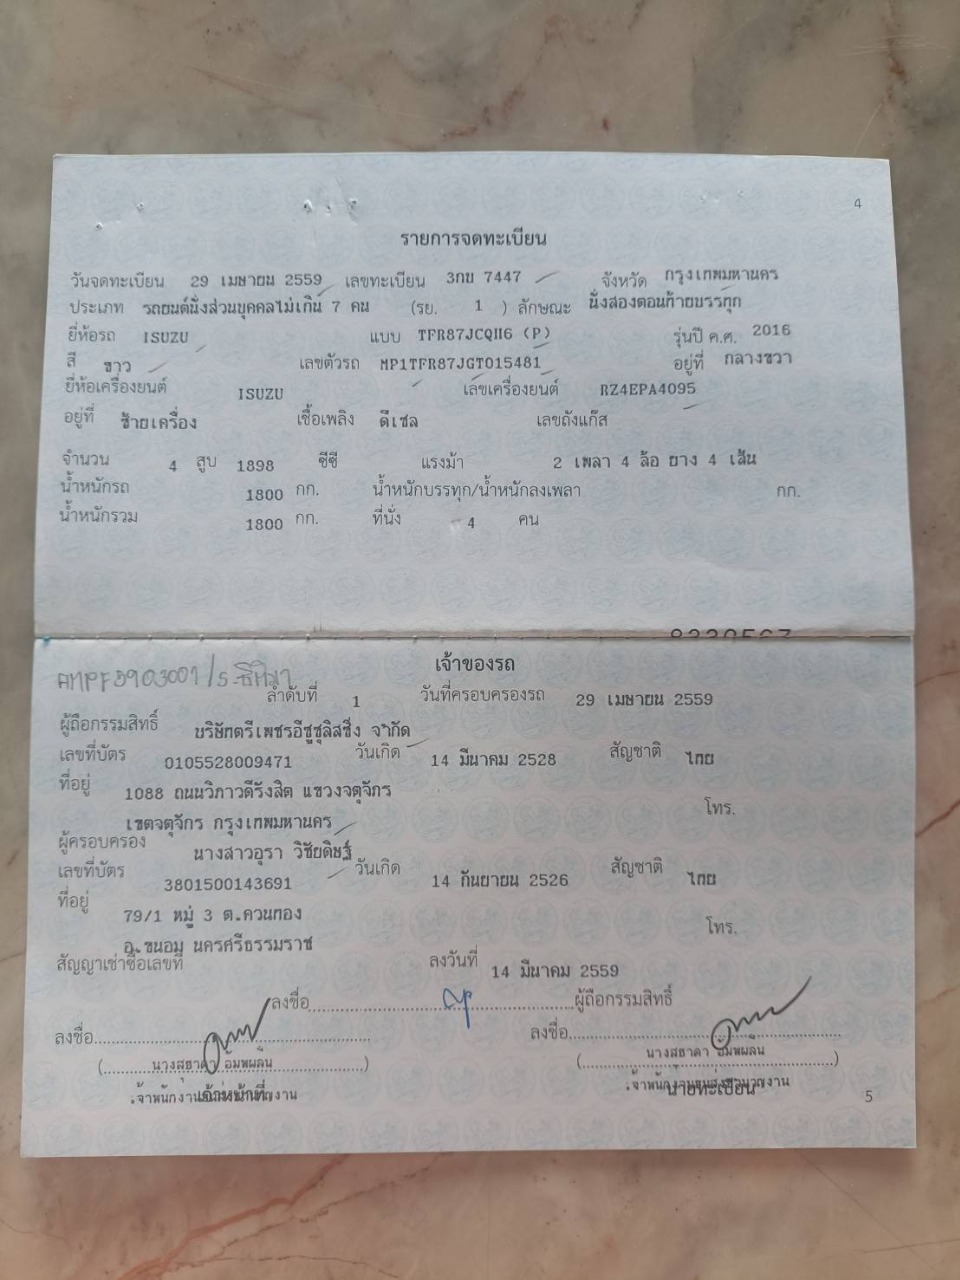 4
รายการจดทะเบียน
วันจดทะเบียน 29 เมษายน 2559 เลขทะเบียน 3กข 7447 จังหวัด กรุงเทพมหานคร
ประเภท รถยนต์นั่งส่วนบุคคลไม่เกิน 7 คน (รย. 1 ) ลักษณะ นั่งสองตอนท้ายบรรทุก
ยี่ห้อรถ ISUZU แบบ TFR87JCQH6 (P) รุ่นปี ค.ศ. 2016
สี ขาว เลขตัวรถ MP1TFR87JGT015481 อยู่ที่ กลางขวา
ยี่ห้อเครื่องยนต์ ISUZU เลขเครื่องยนต์ RZ4EPA4095
อยู่ที่ ซ้ายเครื่อง เชื้อเพลิง ดีเซล เลขถังแก๊ส
จำนวน 4 สูบ 1898 ซีซี แรงม้า 2 เพลา 4 ล้อ ยาง 4 เส้น
น้ำหนักรถ 1800 กก. น้ำหนักบรรทุก/น้ำหนักลงเพลา กก.
น้ำหนักรวม 1800 กก. ที่นั่ง 4 คน
เจ้าของรถ
ลำดับที่ 1 วันที่ครอบครองรถ 29 เมษายน 2559
ผู้ถือกรรมสิทธิ์ บริษัทตรีเพชรอีซูซุลิสซิ่ง จำกัด
เลขที่บัตร 0105528009471 วันเกิด 14 มีนาคม 2528 สัญชาติ ไทย
ที่อยู่ 1088 ถนนวิภาวดีรังสิต แขวงจตุจักร
เขตจตุจักร กรุงเทพมหานคร โทร.
ผู้ครอบครอง นางสาวอุรา วิชัยดิษฐ์
เลขที่บัตร 3801500143691 วันเกิด 14 กันยายน 2526 สัญชาติ ไทย
ที่อยู่ 79/1 หมู่ 3 ต.ควนทอง
อ.ขนอม นครศรีธรรมราช โทร.
สัญญาเช่าซื้อเลขที่ ลงวันที่ 14 มีนาคม 2559
ลงชื่อ ผู้ถือกรรมสิทธิ์
ลงชื่อ ลงชื่อ
(นางสุธาดา อิ่มพผลิน) (นางสุธาดา อิ่มพผลิน)
เจ้าหน้าที่ นายทะเบียน
5